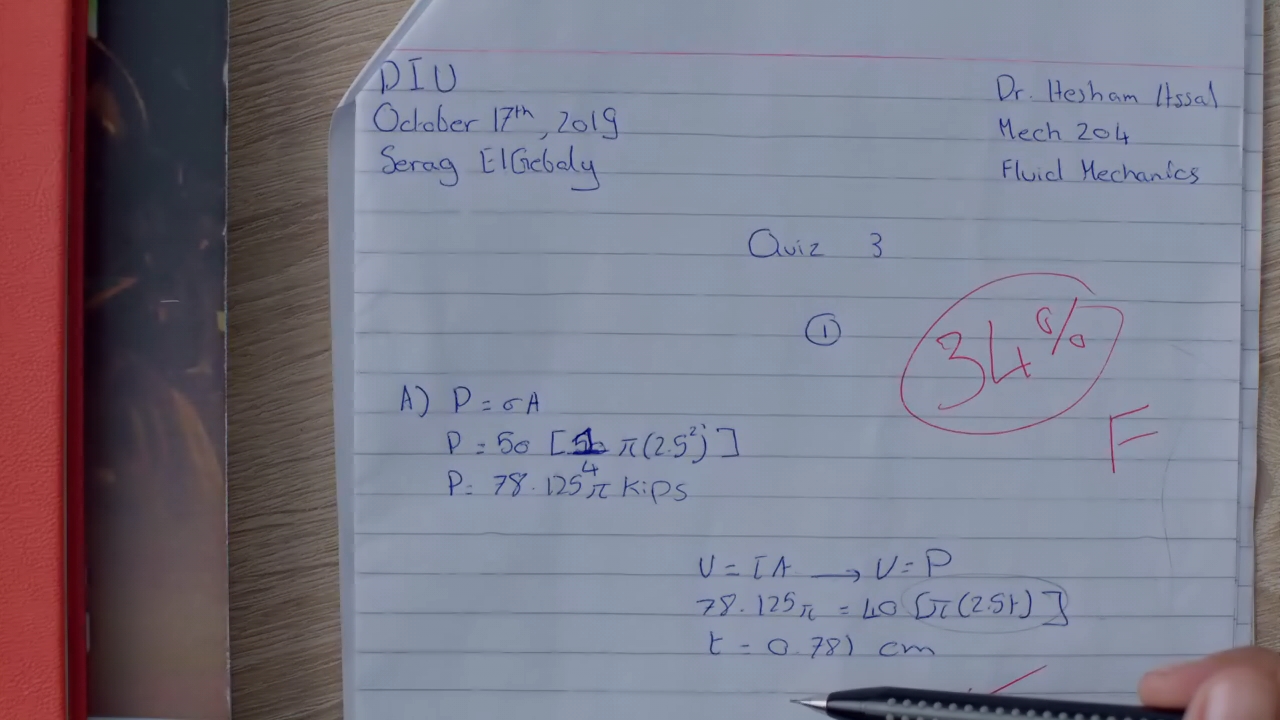 DIU
October 17th, 2019
Serag ElGebaly
Dr. Hesham Assal
Mech 204
Fluid Mechanics
Quiz 3
1
34%
F
A) P = σA
P = 50 [ 1/4 π(2.5²) ]
P = 78.125π Kips
V = τA → V = P
78.125π = 40 [π(2.5t)]
t = 0.781 cm